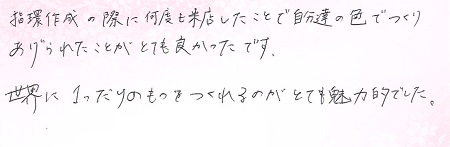 指環作成の際に何度も来店したことで自分達の色でつくり
あげられたことがとても良かったです。
世界に1つだけのものをつくれるのがとても魅力的でした。